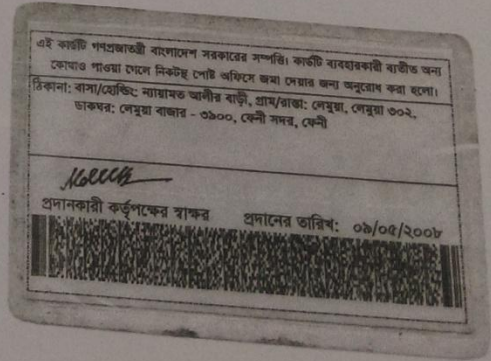 এই কার্ডটি গণপ্রজাতন্ত্রী বাংলাদেশ সরকারের সম্পত্তি। কার্ডটি ব্যবহারকারী ব্যতীত অন্য
কোথাও পাওয়া গেলে নিকটস্থ পোষ্ট অফিসে জমা দেয়ার জন্য অনুরোধ করা হলো।
ঠিকানা: বাসা/হোল্ডিং: ন্যায়ামত আলীর বাড়ী, গ্রাম/রাস্তা: লেমুয়া, লেমুয়া ৩০২,
ডাকঘর: লেমুয়া বাজার - ৩৯০০, ফেনী সদর, ফেনী
প্রদানকারী কর্তৃপক্ষের স্বাক্ষর প্রদানের তারিখ: ০৯/০৫/২০০৮